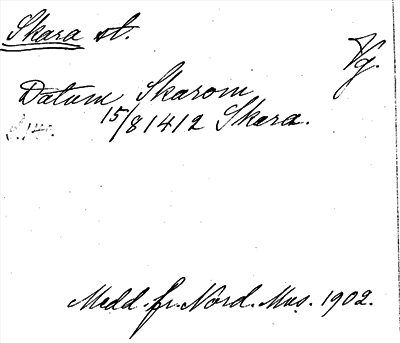 Skara st.
Vg.
Datum Skarom
15/8 1412 Skara.
Medd. fr. Nord. Mus. 1902.